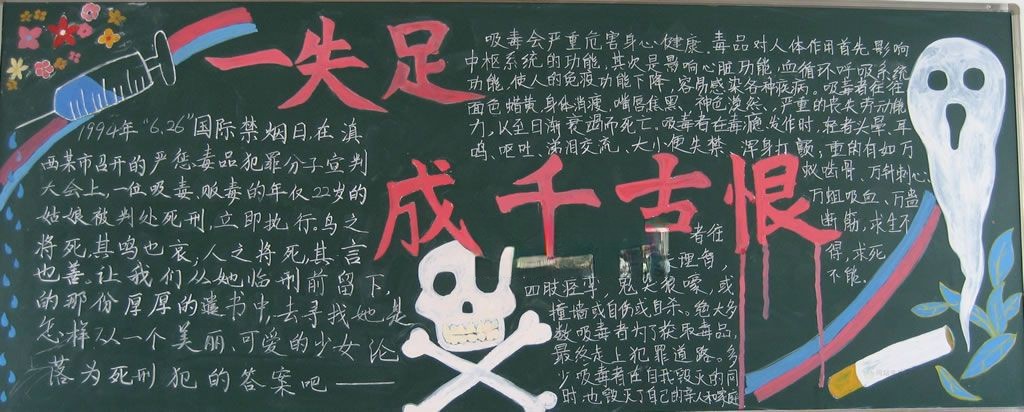 一失足
成千古恨
1994年“6.26”国际禁烟日,在滇
西某市召开的严惩毒品犯罪分子宣判
大会上,一位吸毒、贩毒的年仅22岁的
姑娘被判处死刑,立即执行。鸟之
将死,其鸣也哀;人之将死,其言
也善。让我们从她临刑前留下,
的那份厚厚的遗书中,去寻找她是
怎样从一个美丽、可爱的少女沦
落为死刑犯的答案吧——
吸毒会严重危害身心健康。毒品对人体作用首先影响
中枢系统的功能,其次是影响心脏功能,血循环呼吸系统
功能,使人的免疫功能下降,容易感染各种疾病。吸毒者往往
面色蜡黄,身体消瘦,嘴唇焦黑,神色漠然,严重的丧失劳动能
力,以至日渐衰竭而死亡。吸毒者在毒瘾发作时,轻者头晕、耳
鸣、呕吐、涕泪交流、大小便失禁、浑身打颤,重的有如万
蚁啮骨、万针刺心、
万蛆吸血、万蛊
断筋,求生不
得,求死
不能。
者往
理智,
四肢 ,鬼哭狼嚎,或
撞墙或自伤或自杀。绝大多
数吸毒者为了获取毒品,
最终走上犯罪道路。多
少吸毒者在自我毁灭的同
时,也毁灭了自己的亲人和家庭